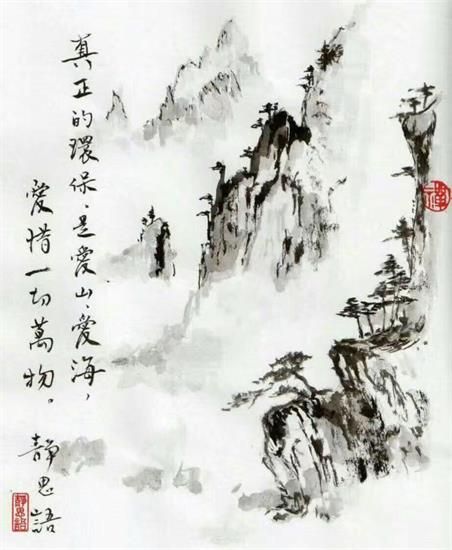 真正的環保、是愛山、愛海，
愛惜一切萬物。
靜思語
靜思語